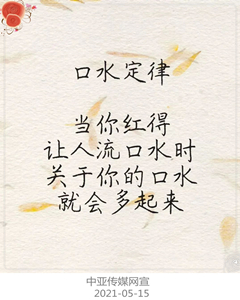 口水定律
当你红得
让人流口水时
关于你的口水
就会多起来
中亚传媒网宣
2021-05-15